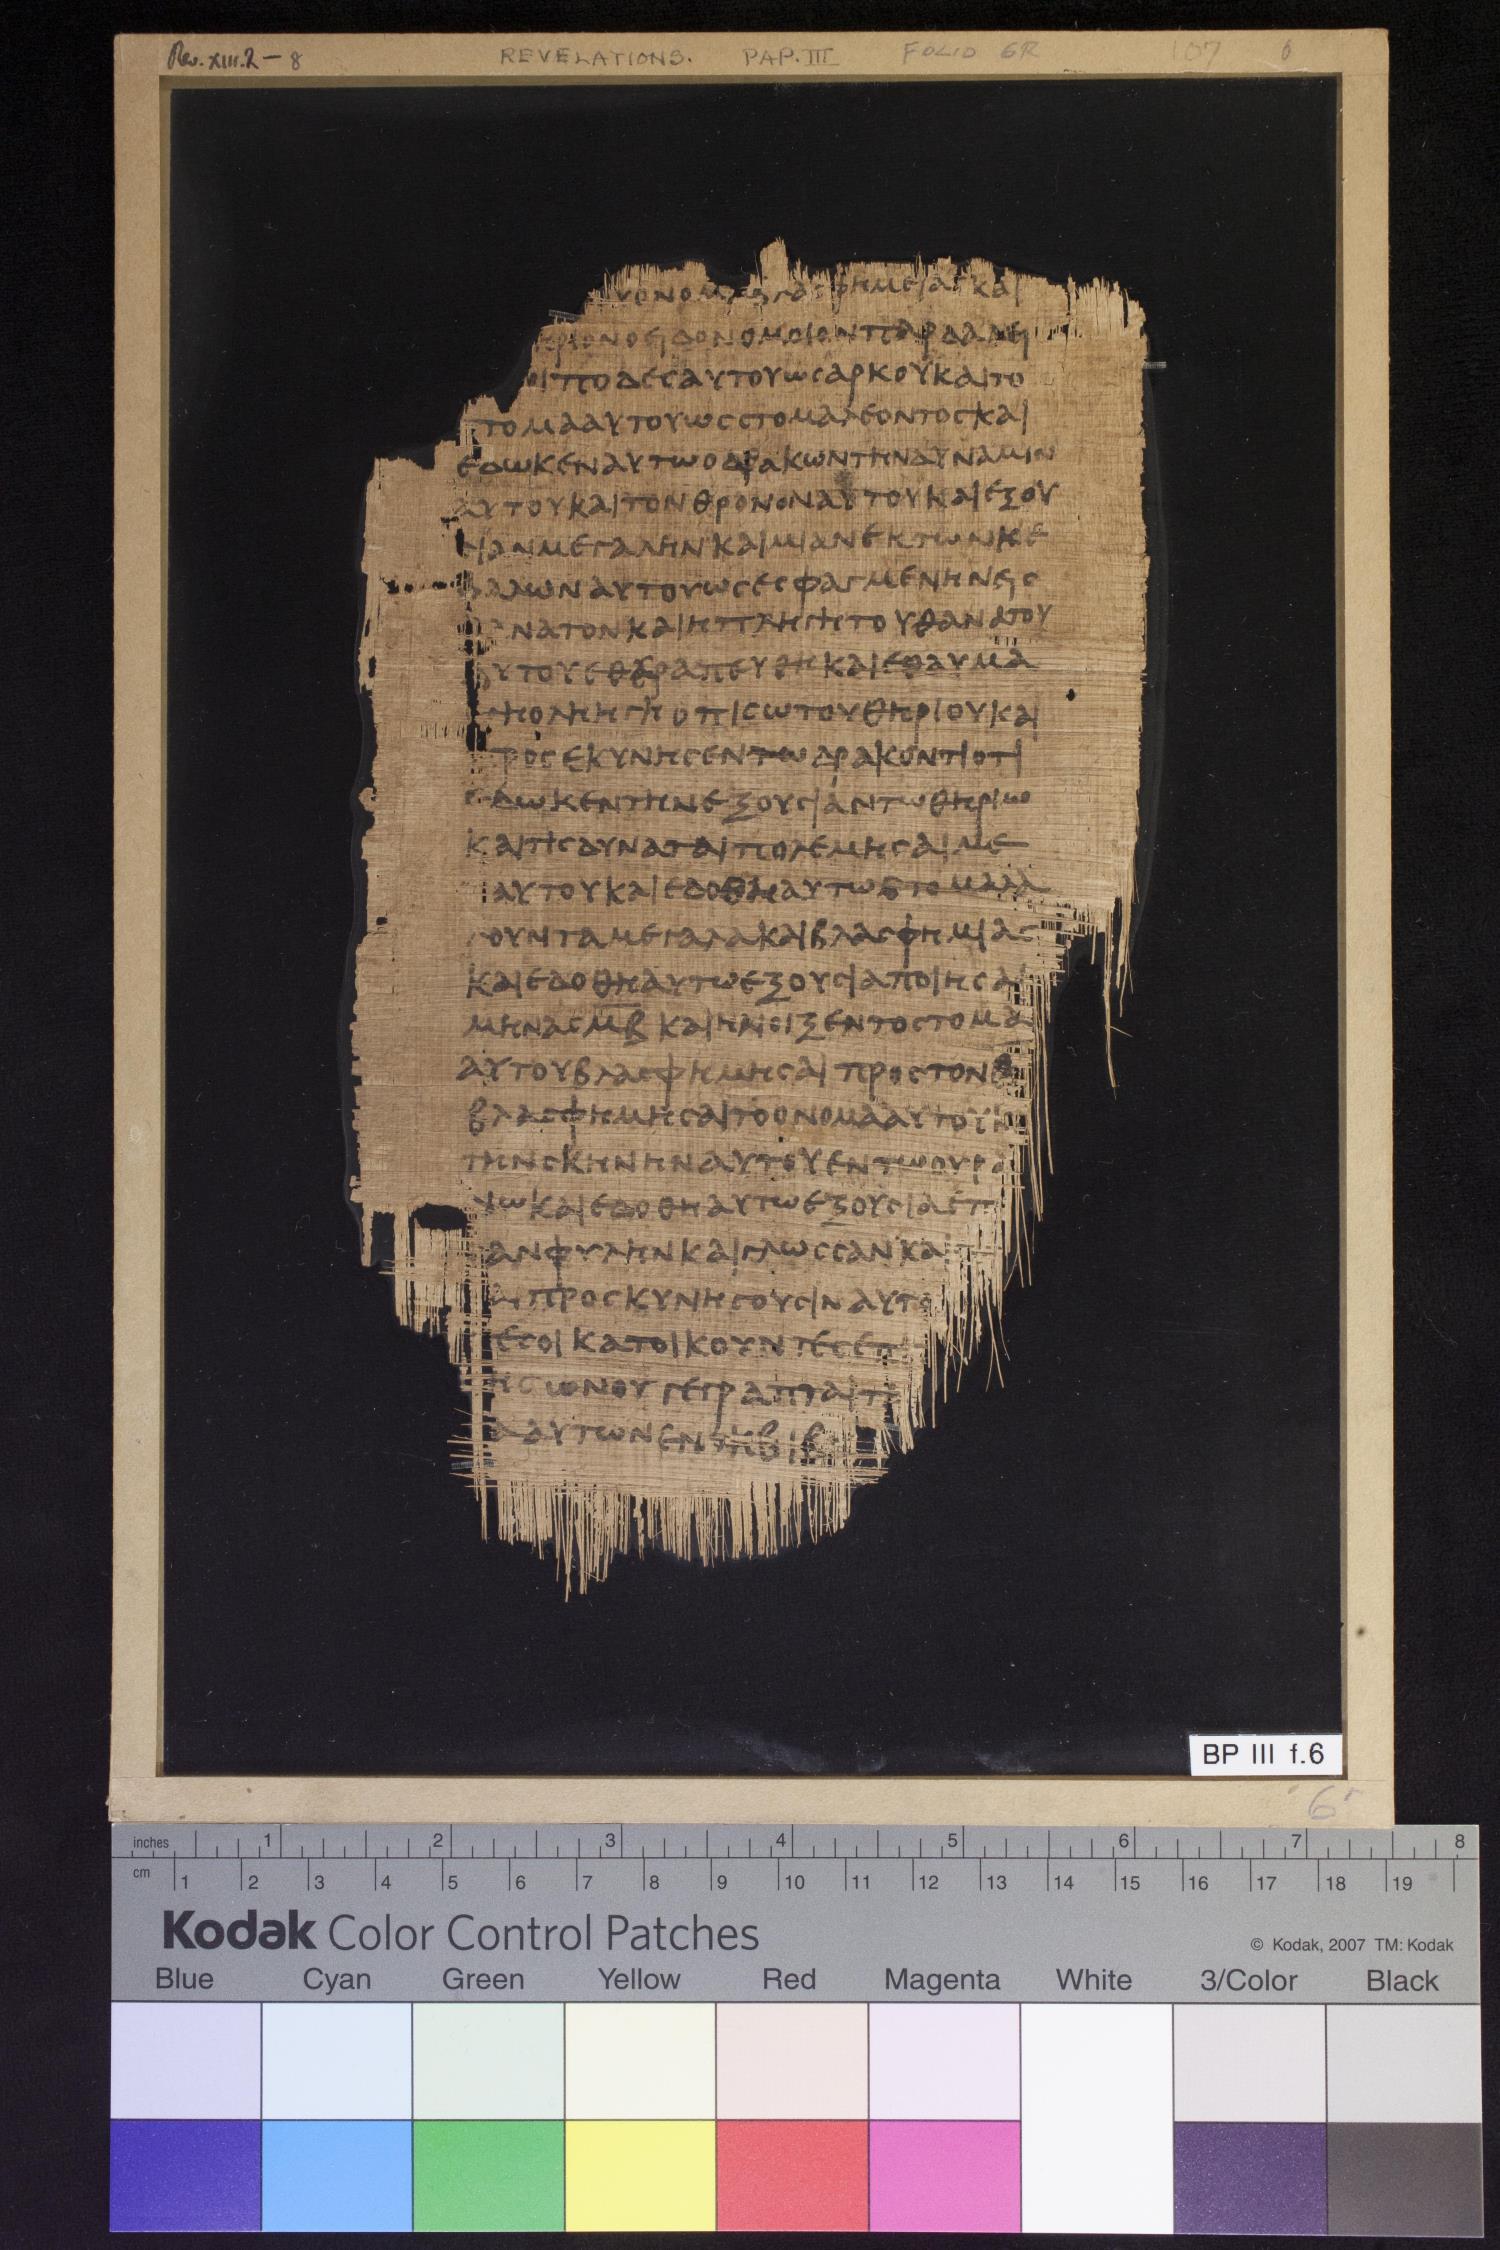 Rev. XIII. 2 – 8 REVELATIONS. PAP. III FOLIO 6R 107 6
ονομα βλασφημειας και
ριονοειδονομοιονπαρδαλει
οιποδεσαυτουωσαρκουκαιτο
τομααυτουωσστομαλεοντοσκαι
εδωκεναυτωοδρακωντηνδυναμιν
αυτουκαιτονθρονοναυτουκαιεξου
ιανμεγαληνκαιμιανεκτωνκε
αλωναυτουωσεσφαγμενηνεισ
ανατονκαιηπληγητουθανατου
υτουεθεραπευθηκαιεθαυμα
ηοληγηοπισωτουθηριουκαι
προσεκυνησεντωδρακοντιοτι
εδωκεντηνεξουσιαντωθηριω
καιτισδυναταιπολεμησαιμε
αυτουκαιεδοθηαυτωστομαλα
λουνταμεγαλακαιβλασφημιας
καιεδοθηαυτωεξουσιαποιησαι
μηνασμβ καιηνοιξεντοστομα
αυτουβλασφημησαι προστονθ
βλασφημησαιτοονομααυτουκ
τηνσκηνηναυτουεντωουρα
νωκαιεδοθηαυτωεξουσιαεπ
ανφυληνκαιγλωσσανκαι
αιπροσκυνησουσιναυτο
τεσοικατοικουντεσεπ
ησωνουγεγραπταιτ
ααυτωνεντηβιβ
BP III f.6
6r
inches 1 2 3 4 5 6 7 8
cm 1 2 3 4 5 6 7 8 9 10 11 12 13 14 15 16 17 18 19
Kodak Color Control Patches © Kodak, 2007 TM: Kodak
Blue Cyan Green Yellow Red Magenta White 3/Color Black